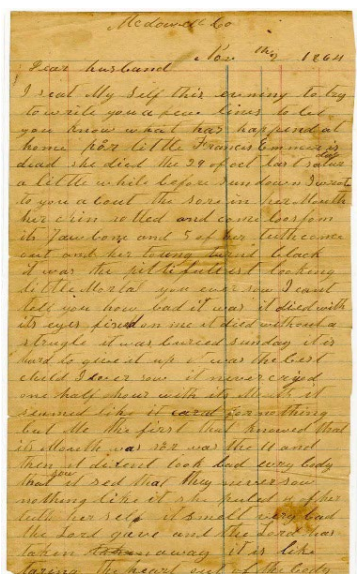 Mcdowell Co
Nov the 2 1864
Dear husband
I seat My Self this evening to try
to write you a few lines to let
you know what has hapend at
home poor little Francis Emmer is
dead she died the 29 of oct last satur day
a little while before sun down I wrote
to you about the sore in her Mouth
her chin rotted and come loos from
its Jaw bone and 5 of her teeth come
out and her toung turnd black
it was the pittifullest looking
little Mortal you ever sow I cant
tell you how bad it was it died with
its eyes fixed on me it died without a
strugle it was buried sunday it is
hard to give it up it was the best
child I ever sow it never cryed
one half hour with its Mouth it
seemed like it card for nothing
but Me the first that knowed that
its Mouth was sore was the 11 and
then it dident look bad every body
that sow it sed that they never sow
nothing like it she puled of her
teeth her self it smelt very bad
the Lord gave and the Lord has
taken away it is like
taring the heart out of the body